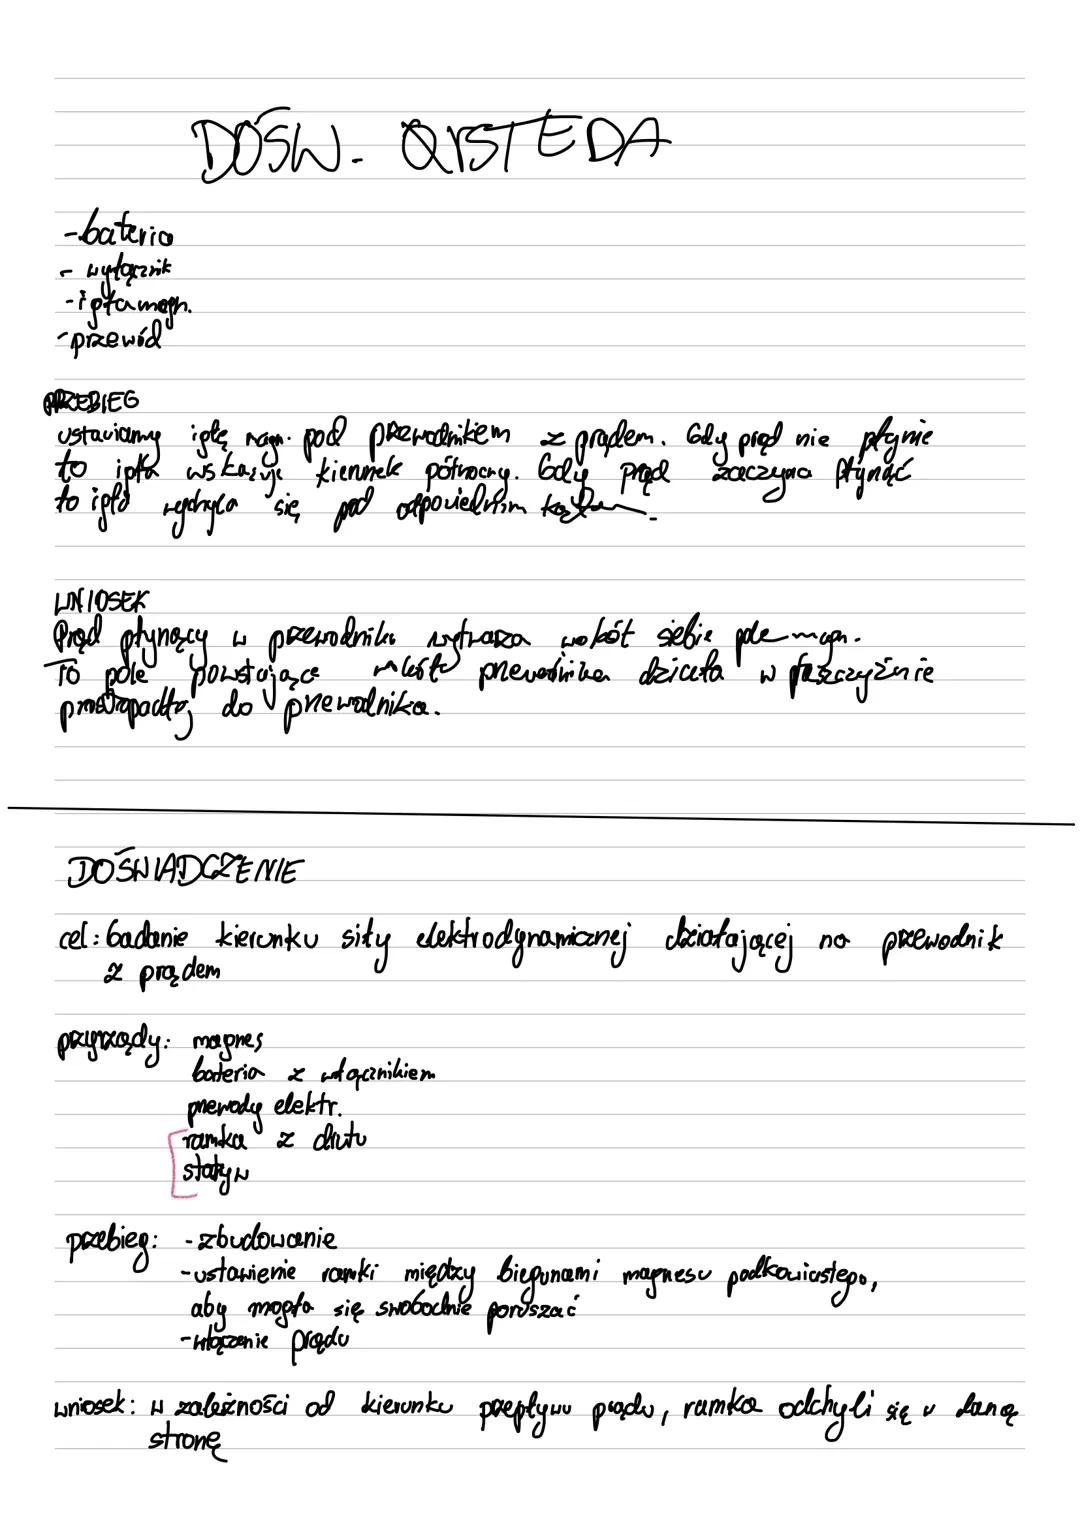 DOŚW. ØRSTEDA
- bateria
- wyłącznik
- igła magn.
- przewód
PRZEBIEG
ustawiamy igłę magn. pod przewodnikiem z prądem. Gdy prąd nie płynie
to igła wskazuje kierunek północny. Gdy prąd zaczyna płynąć
to igła wychyla się pod odpowiednim kątem.
WNIOSEK
Prąd płynący w przewodniku wytwarza wokół siebie pole magn.
To pole powstające wokół przewodnika działa w płaszczyźnie
prostopadłej do przewodnika.
DOŚWIADCZENIE
cel: badanie kierunku siły elektrodynamicznej działającej na przewodnik
z prądem
przyrządy: magnes
bateria z włącznikiem
przewody elektr.
ramka z drutu
statyw
przebieg: - zbudowanie
- ustawienie ramki między biegunami magnesu podkowiastego,
aby mogła się swobodnie poruszać
- włączenie prądu
wniosek: w zależności od kierunku przepływu prądu, ramka odchyli się w daną
stronę